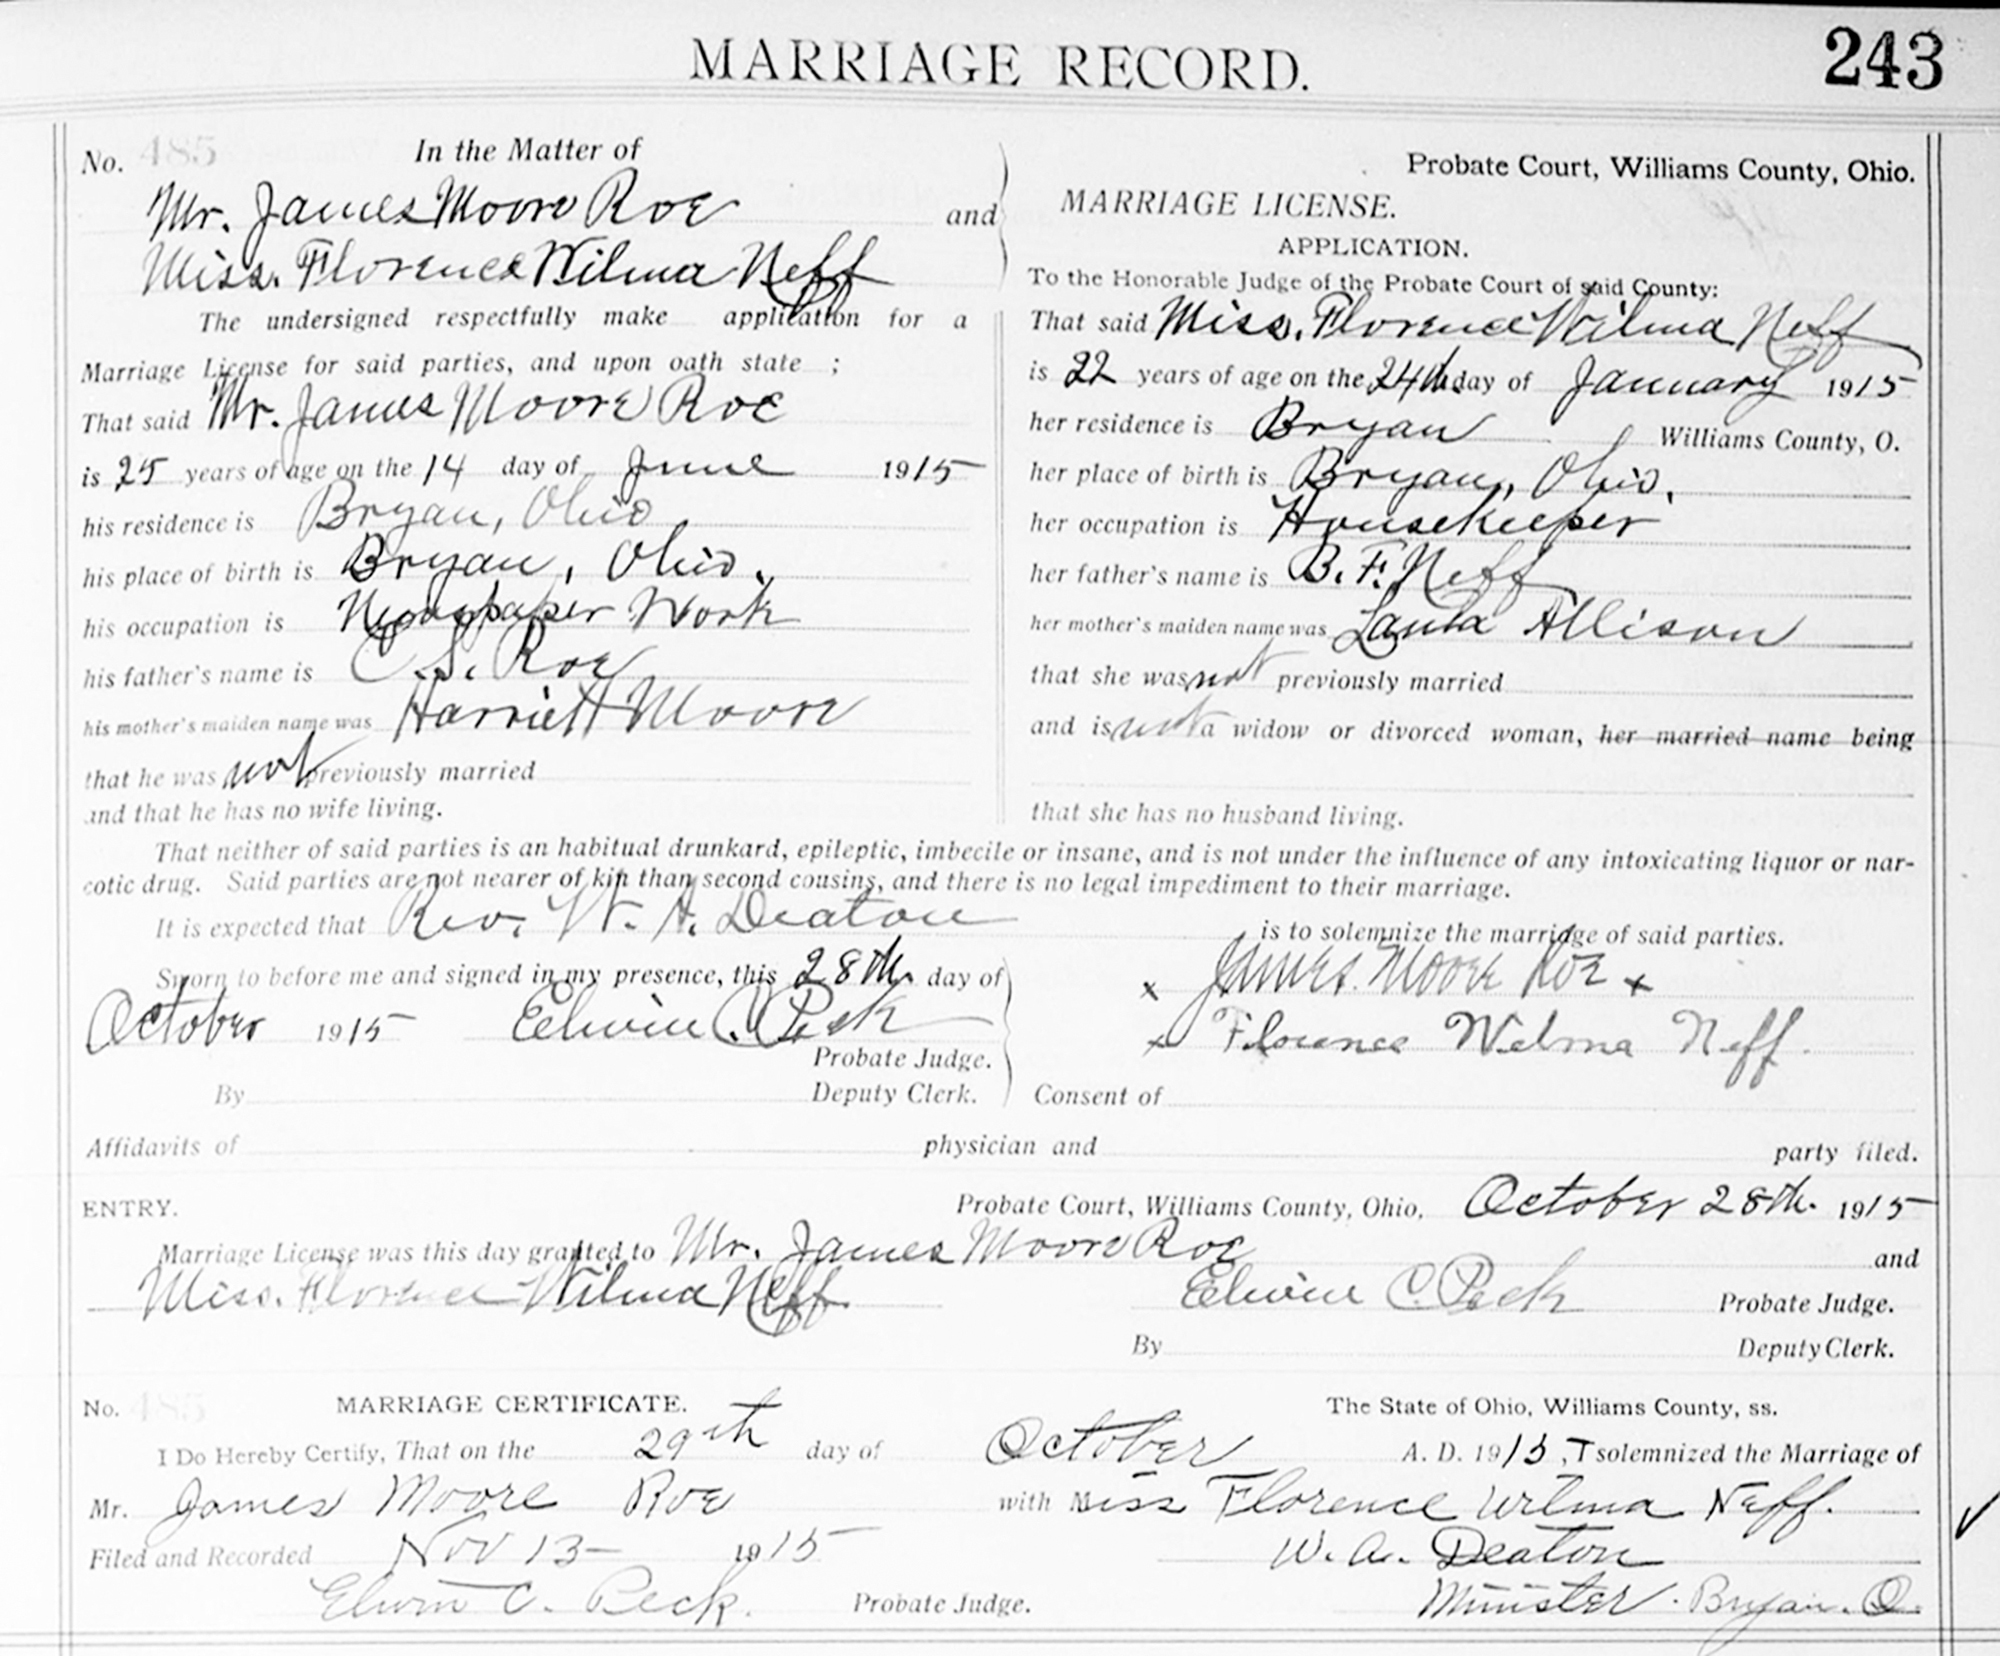 MARRIAGE RECORD.
243
No. 485
In the Matter of
Mr. James Moore Roe and
Miss. Florence Wilma Neff
The undersigned respectfully make application for a
Marriage License for said parties, and upon oath state ;
That said Mr. James Moore Roe
is 25 years of age on the 14 day of June 1915
his residence is Bryan, Ohio
his place of birth is Bryan, Ohio.
his occupation is Newspaper Work
his father's name is C. S. Roe
his mother's maiden name was Harriett Moore
that he was not previously married
and that he has no wife living.
Probate Court, Williams County, Ohio.
MARRIAGE LICENSE.
APPLICATION.
To the Honorable Judge of the Probate Court of said County:
That said Miss. Florence Wilma Neff
is 22 years of age on the 24th. day of January 1915
her residence is Bryan Williams County, O.
her place of birth is Bryan, Ohio.
her occupation is Housekeeper
her father's name is B. F. Neff
her mother's maiden name was Allison
that she was not previously married
and is not a widow or divorced woman, her married name being
that she has no husband living.
That neither of said parties is an habitual drunkard, epileptic, imbecile or insane, and is not under the influence of any intoxicating liquor or nar-
cotic drug. Said parties are not nearer of kin than second cousins, and there is no legal impediment to their marriage.
It is expected that Rev. W. A. Deaton is to solemnize the marriage of said parties.
Sworn to before me and signed in my presence, this 28th. day of
October 1915 Edwin C. Peck
Probate Judge.
By Deputy Clerk.
x James Moore Roe x
x Florence Wilma Neff.
Consent of
Affidavits of physician and party filed.
ENTRY. Probate Court, Williams County, Ohio, October 28th. 1915
Marriage License was this day granted to Mr. James Moore Roe and
Miss. Florence Wilma Neff Edwin C. Peck Probate Judge.
By Deputy Clerk.
No. 485 MARRIAGE CERTIFICATE. The State of Ohio, Williams County, ss.
I Do Hereby Certify, That on the 29th day of October A. D. 1915, I solemnized the Marriage of
Mr. James Moore Roe with Miss Florence Wilma Neff.
Filed and Recorded Nov 13 1915 W. A. Deaton
Edwin C. Peck. Probate Judge. Minister. Bryan. O.